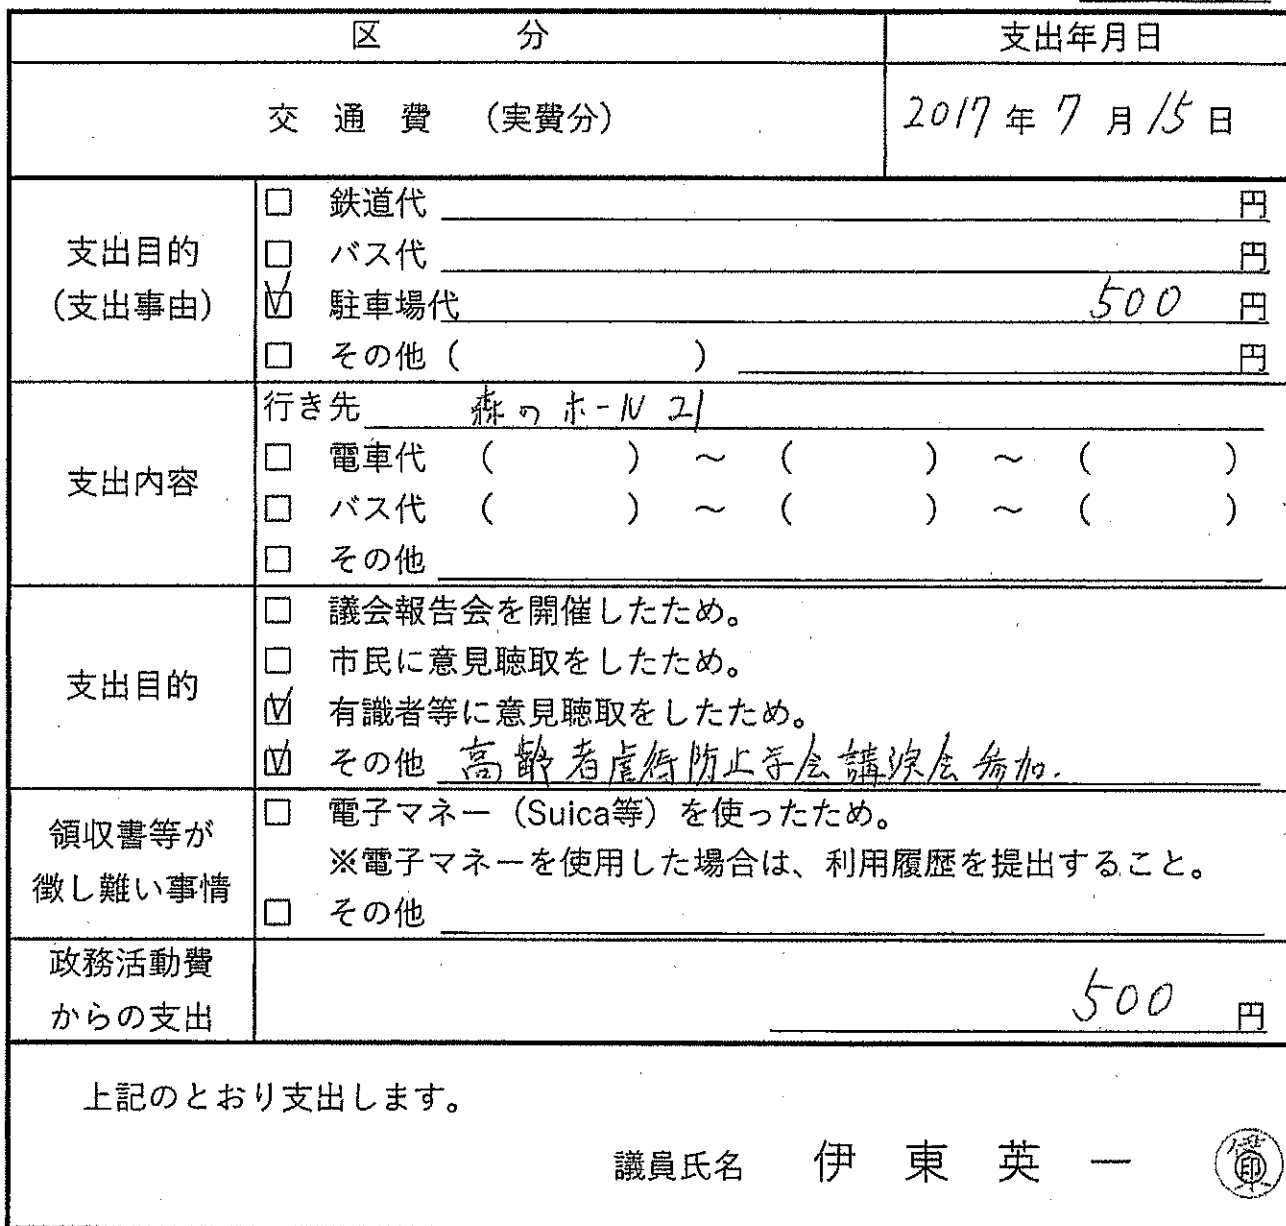 区 分 支出年月日
交 通 費 （実費分） 2017 年 7 月 15 日
支出目的
（支出事由）
□ 鉄道代 円
□ バス代 円
☑ 駐車場代 500 円
□ その他（ ） 円
支出内容
行き先 森のホール21
□ 電車代 （ ） ～ （ ） ～ （ ）
□ バス代 （ ） ～ （ ） ～ （ ）
□ その他
支出目的
□ 議会報告会を開催したため。
□ 市民に意見聴取をしたため。
☑ 有識者等に意見聴取をしたため。
☑ その他 高齢者虐待防止学会講演会参加.
領収書等が
徴し難い事情
□ 電子マネー（Suica等）を使ったため。
※電子マネーを使用した場合は、利用履歴を提出すること。
□ その他
政務活動費
からの支出
500 円
上記のとおり支出します。
議員氏名 伊 東 英 一 印